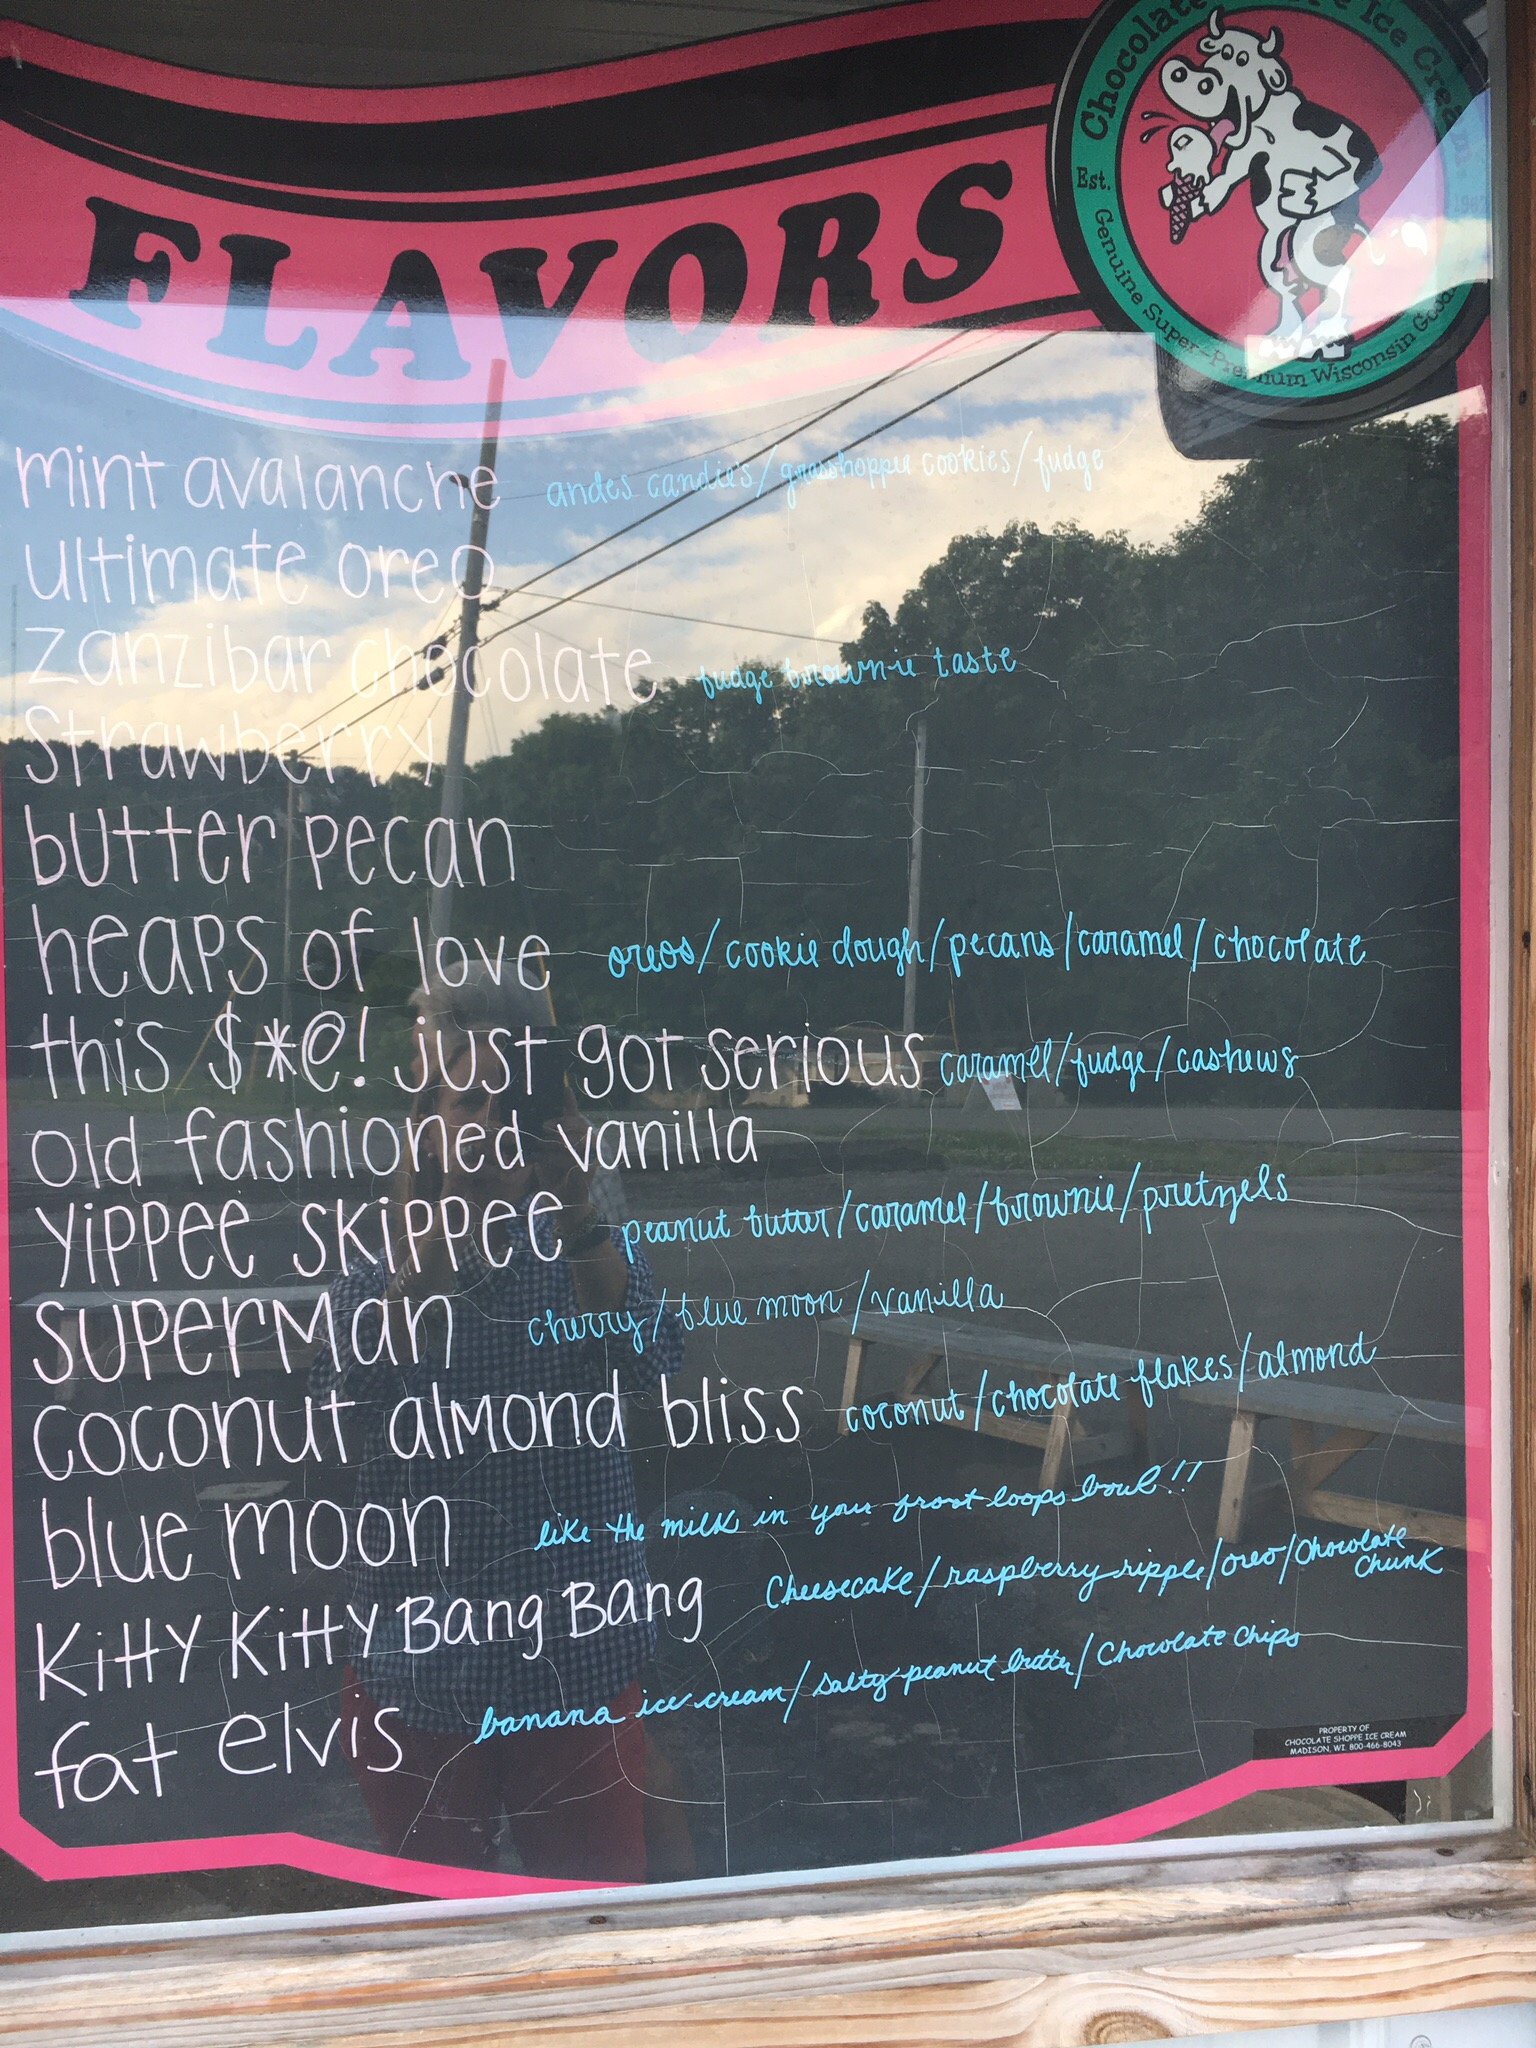 Chocolate Ice Cream
Est.
Genuine Super-Premium Wisconsin
FLAVORS
mint avalanche andes candies/grasshopper cookies/fudge
ultimate oreo
zanzibar chocolate fudge brownie taste
strawberry
butter pecan
heaps of love oreos/cookie dough/pecans/caramel/chocolate
this $*@! just got serious caramel/fudge/cashews
old fashioned vanilla
yippee skippee peanut butter/caramel/brownie/pretzels
superman cherry/blue moon/vanilla
coconut almond bliss coconut/chocolate flakes/almond
blue moon like the milk in your froot loops bowl!!
Kitty Kitty Bang Bang Cheesecake/raspberry ripple/oreo/Chocolate
Chunk
fat elvis banana ice cream/salty peanut butter/Chocolate Chips
PROPERTY OF
CHOCOLATE SHOPPE ICE CREAM
MADISON, WI. 800-466-8043